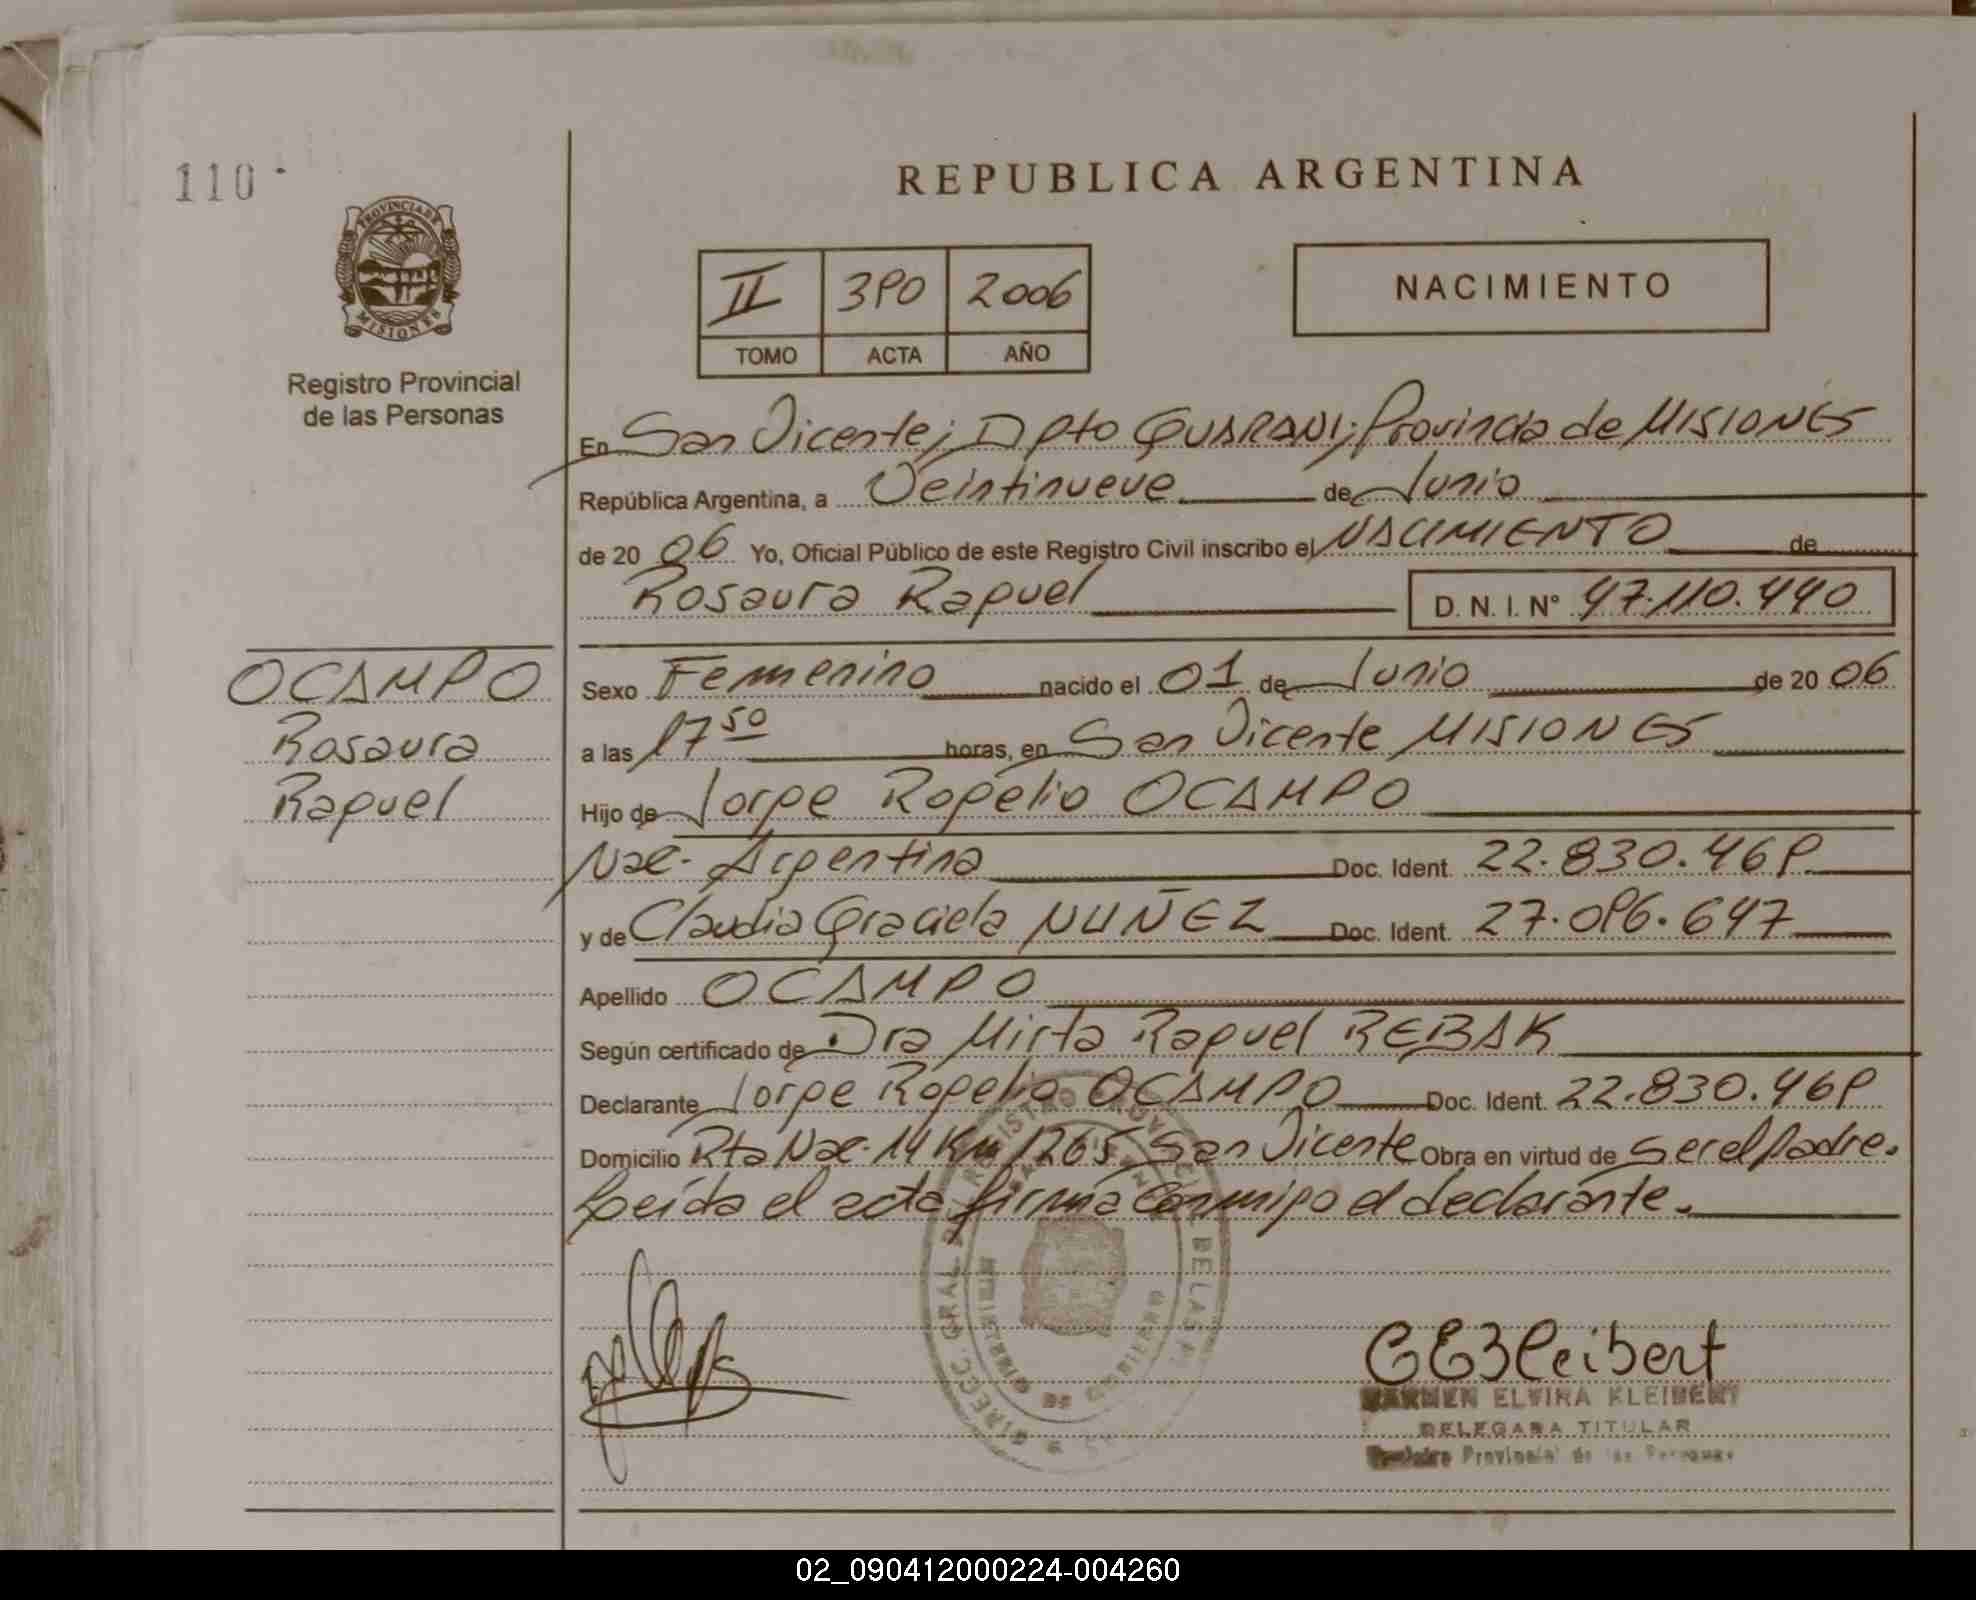 110
REPUBLICA ARGENTINA
PROVINCIA DE
MISIONES
Registro Provincial
de las Personas
II 390 2006
TOMO ACTA AÑO
NACIMIENTO
En San Vicente; Dpto GUARANI; Provincia de MISIONES
República Argentina, a Veintinueve de Junio
de 2006 Yo, Oficial Público de este Registro Civil inscribo el NACIMIENTO de
Rosaura Raquel D. N. I. N° 47.110.440
OCAMPO
Rosaura
Raquel
Sexo Femenino nacido el 01 de Junio de 2006
a las 17 50 horas, en San Vicente MISIONES
Hijo de Jorge Rogelio OCAMPO
Nac. Argentina Doc. Ident. 22.830.469
y de Claudia Graciela NUÑEZ Doc. Ident. 27.096.647
Apellido OCAMPO
Según certificado de Dra Mirta Raquel REBAK
Declarante Jorge Rogelio OCAMPO Doc. Ident. 22.830.469
Domicilio Rta Nac. 14 Km 1265 San Vicente Obra en virtud de ser el padre.
Leída el acta firma conmigo el declarante.
DIRECC. GRAL. DEL REGISTRO PROVINCIAL DE LAS
MINISTERIO DE GOBIERNO
CEKleibert
CARMEN ELVIRA KLEIBERT
DELEGADA TITULAR
Registro Provincial de las Personas
02_090412000224-004260